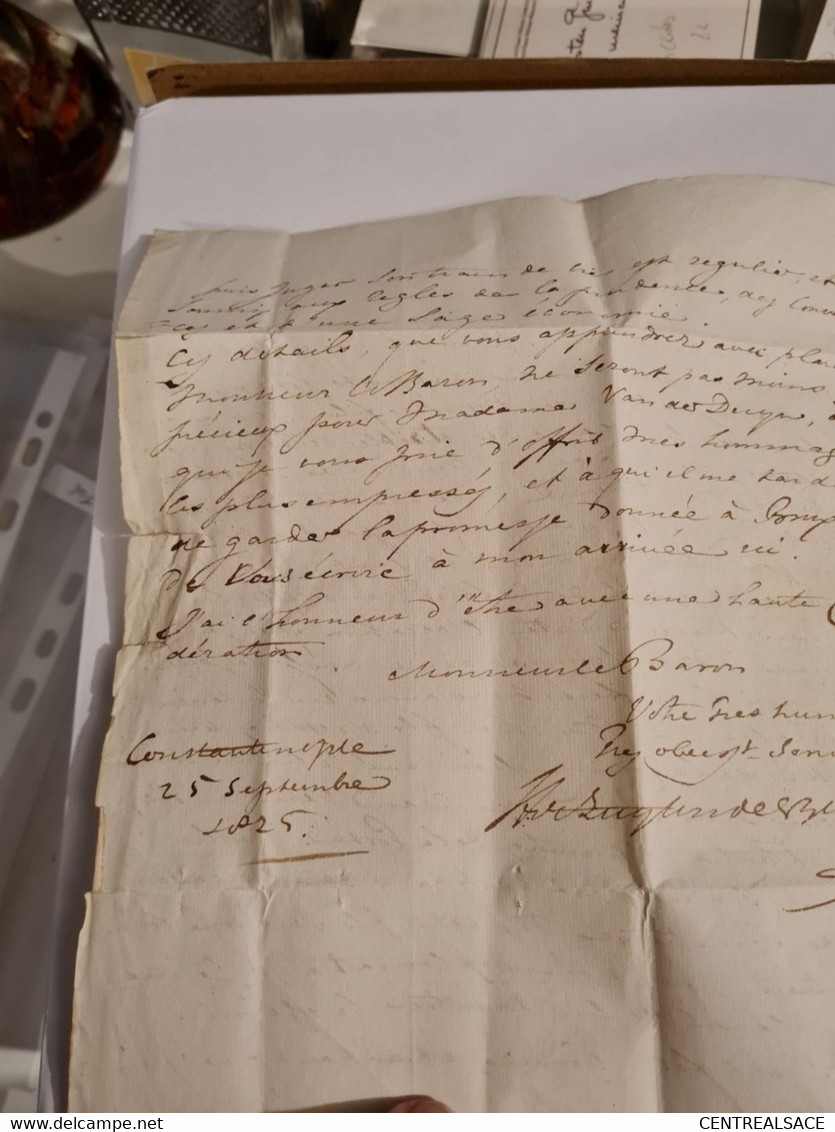 puis juger son train de vie est regulier, et
soumis aux regles de la prudence, des
et d'une sage économie.
Ces détails, que vous apprendrez avec plai
Monsieur le Baron, ne seront pas moins
précieux pour Madame Van der Duyn,
que je vous prie d'offrir mes hommag
les plus empressés, et à qui il me tard
de garder la promesse donnée à Brux
de vous écrire à mon arrivée ici.
J'ai l'honneur d'être avec une haute
dération
Monsieur le Baron
Votre tres hum
Tres obeist. Serv
Constantinople
25 Septembre
1825.
CENTREALSACE